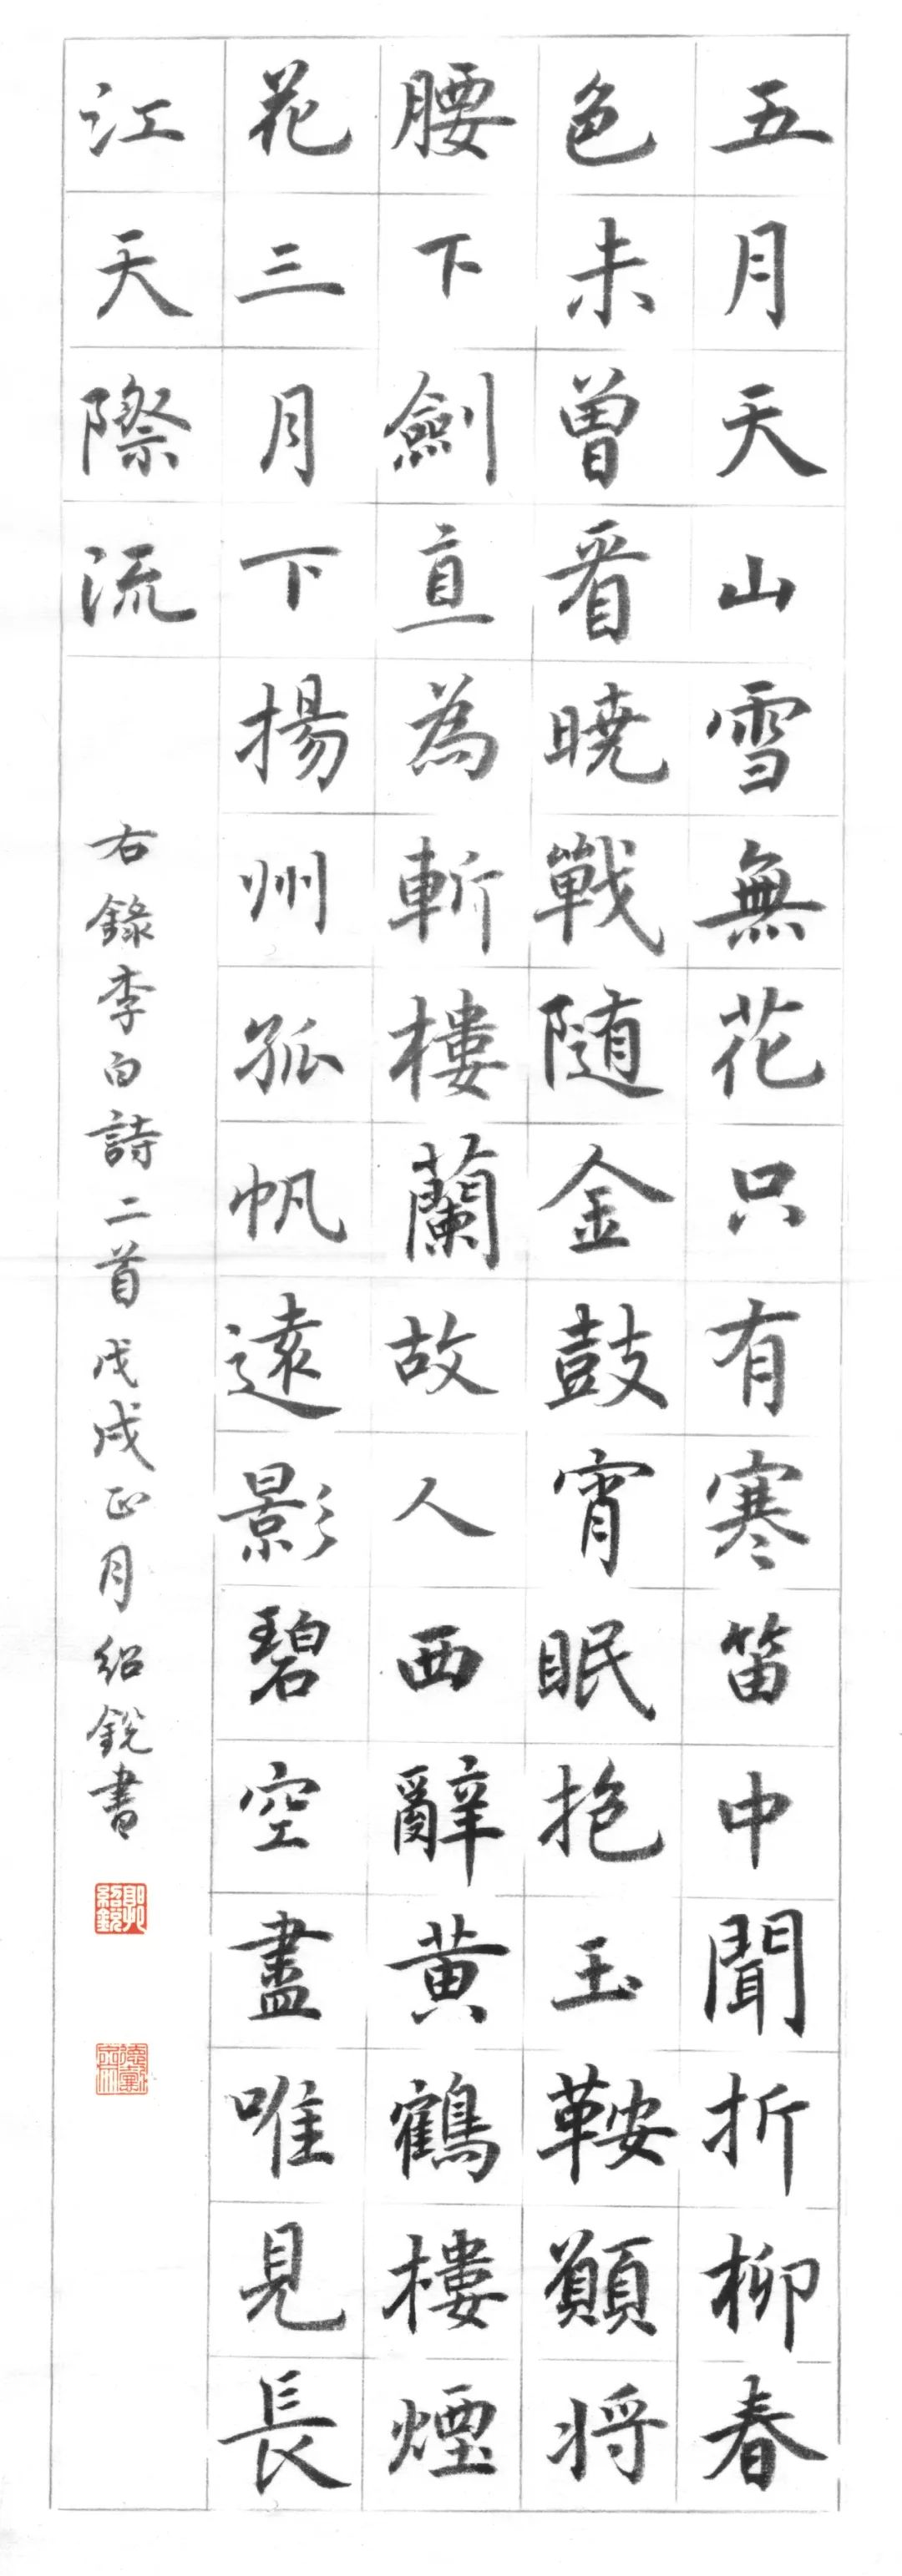 五月天山雪無花只有寒笛中聞折柳春
色未曾看曉戰随金鼓宵眠抱玉鞍願将
腰下劍直為斬樓蘭故人西辭黄鶴樓煙
花三月下揚州孤帆遠影碧空盡唯見長
江天際流
右錄李白詩二首戊戌正月紹銳書
郭紹銳